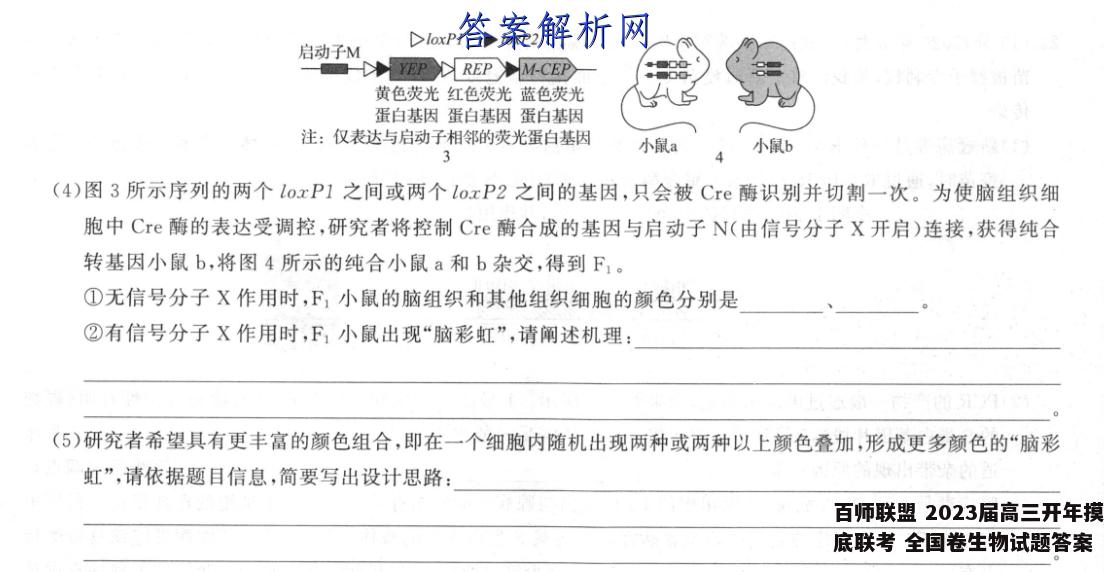 答案解析网
▷loxP1 ▶loxP2
启动子M
YEP REP M-CEP
黄色荧光 红色荧光 蓝色荧光
蛋白基因 蛋白基因 蛋白基因
注：仅表达与启动子相邻的荧光蛋白基因
3
小鼠a 小鼠b
4
(4)图3所示序列的两个loxP1之间或两个loxP2之间的基因,只会被Cre酶识别并切割一次。为使脑组织细
胞中Cre酶的表达受调控,研究者将控制Cre酶合成的基因与启动子N(由信号分子X开启)连接,获得纯合
转基因小鼠b,将图4所示的纯合小鼠a和b杂交,得到F₁。
①无信号分子X作用时,F₁小鼠的脑组织和其他组织细胞的颜色分别是______、______。
②有信号分子X作用时,F₁小鼠出现“脑彩虹”,请阐述机理:______
。
(5)研究者希望具有更丰富的颜色组合,即在一个细胞内随机出现两种或两种以上颜色叠加,形成更多颜色的“脑彩
虹”,请依据题目信息,简要写出设计思路:______
。
百师联盟 2023届高三开年摸
底联考 全国卷生物试题答案